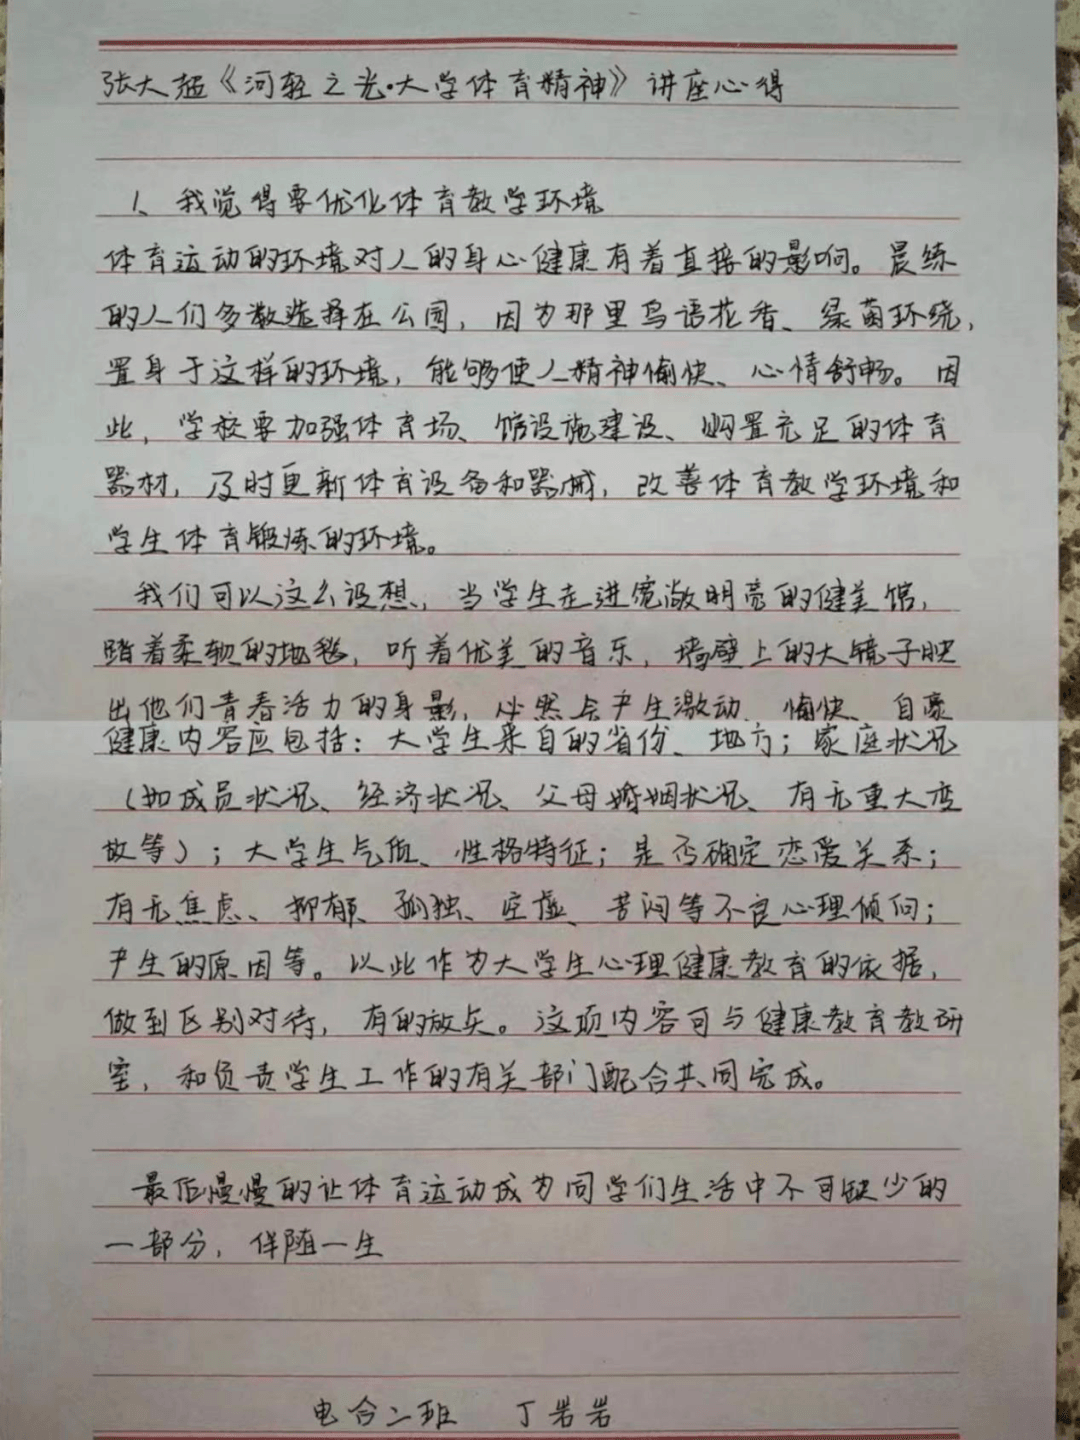 张大超《河轻之光·大学体育精神》讲座心得
1、我觉得要优化体育教学环境
体育运动的环境对人的身心健康有着直接的影响。晨练
的人们多数选择在公园，因为那里鸟语花香、绿茵环绕，
置身于这样的环境，能够使人精神愉快、心情舒畅。因
此，学校要加强体育场、馆设施建设、购置充足的体育
器材，及时更新体育设备和器械，改善体育教学环境和
学生体育锻炼的环境。
我们可以这么设想，当学生走进宽敞明亮的健美馆，
踏着柔软的地毯，听着优美的音乐，墙壁上的大镜子映
出他们青春活力的身影，必然会产生激动、愉快、自豪
健康内容应包括：大学生来自的省份、地方；家庭状况
（如成员状况、经济状况、父母婚姻状况、有无重大变
故等）；大学生气质、性格特征；是否确定恋爱关系；
有无焦虑、抑郁、孤独、空虚、苦闷等不良心理倾向；
产生的原因等。以此作为大学生心理健康教育的依据，
做到区别对待，有的放矢。这项内容可与健康教育教研
室，和负责学生工作的有关部门配合共同完成。
最后慢慢的让体育运动成为同学们生活中不可缺少的
一部分，伴随一生
电合二班 丁岩岩